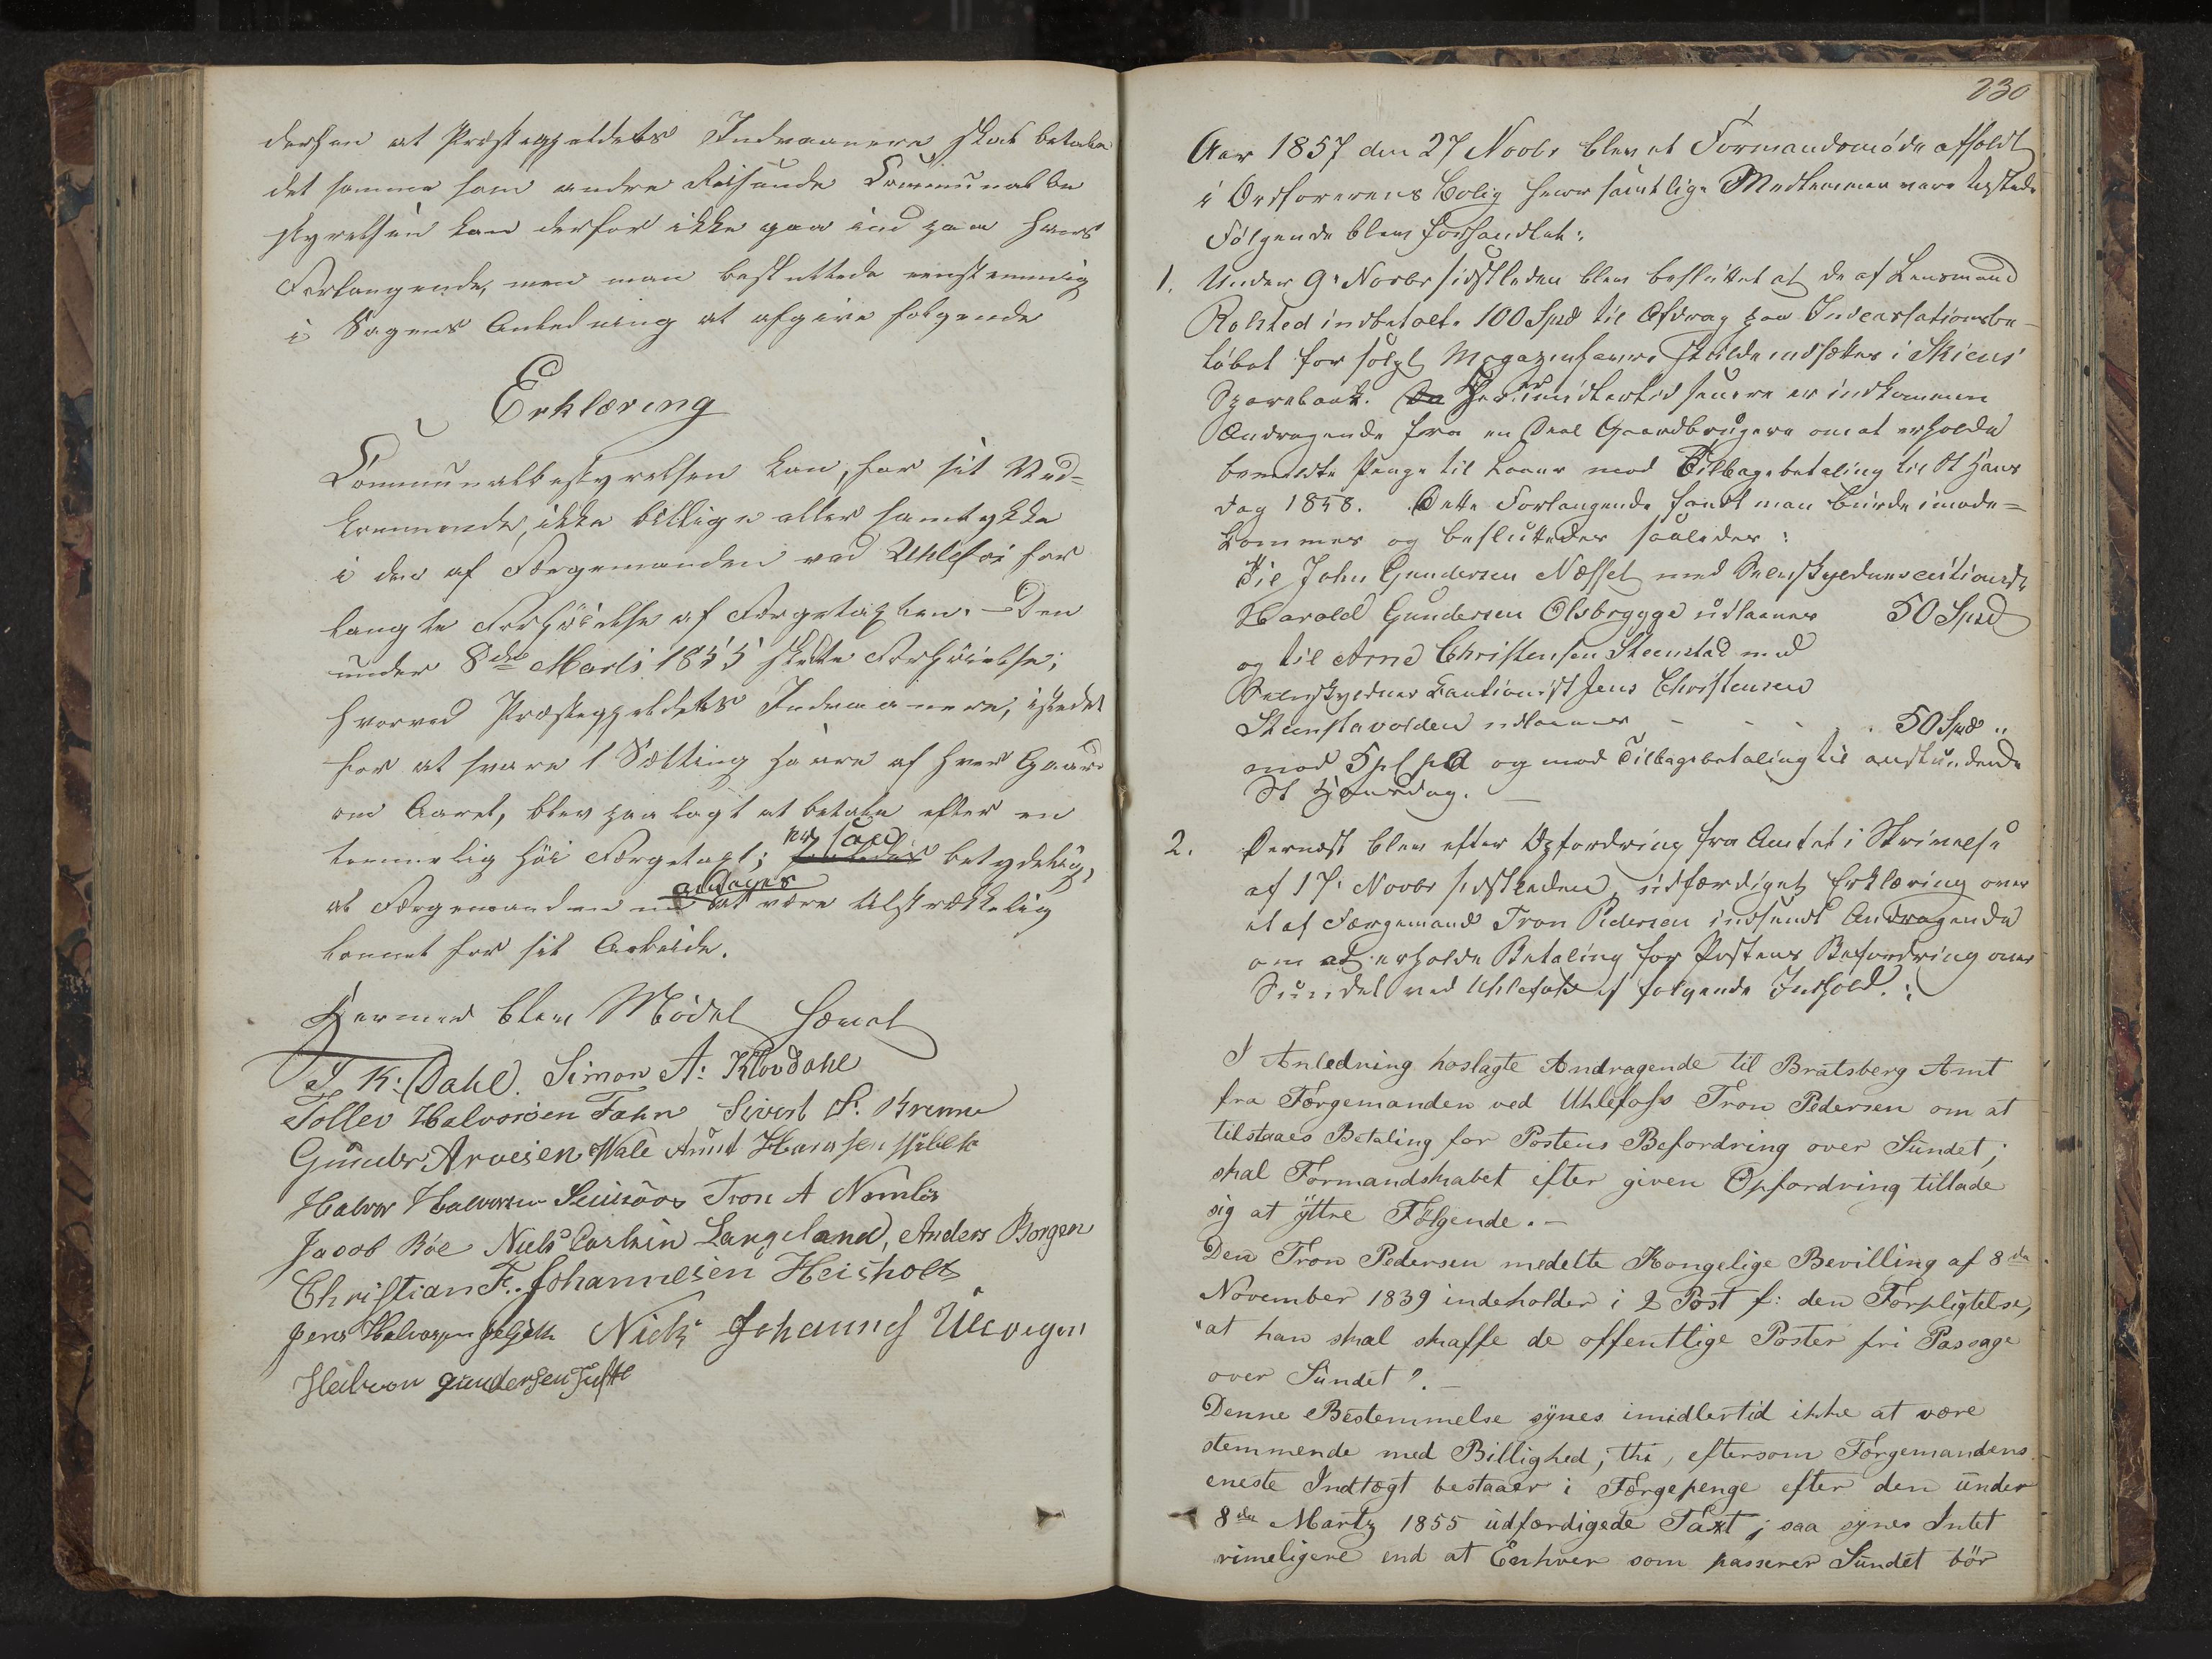 dersen at Præstegjeldets Indvaanere skal betale
det samme som andre Reisende Communalbe
styrelsen kan derfor ikke gaa ind paa hans
Forlangende, men man besluttede eenstemmig
i Sagens Anledning at afgive følgende
Erklæring
Communalbestyrelsen kan, for sit Ved-
kommende, ikke billige eller samtykke
i den af Færgemanden ved Uhlefos for
langte Forhøielse af Færgetaxten. – Den
under 8de Marts 1855 skete Forhøielse;
hvorved Præstegjeldets Indvaanere, istedet
for at svare 1 Sætting Havre af hver Gaard
om Aaret, blev paalagt at betale efter en
temmelig høi Færgetaxt; er saa betydelig,
at Færgemanden maa antages at være tilstrækkelig
lønnet for sit Arbeide.
Hermed blev Mødet hævet
J. K: Dahl. Simon A: Klovdahl
Tollev Halvorsen Fahn Sivert S. Krenne
Gunder Arvesen Wale Amut Hansen
Halvor Halvorsen Tron A Nomlis
Jacob Bøe Niels Carlsin Langeland, Anders Borgen
Christian F. Johannesen Heisholt
Jens Halvorsen Niels Johannes Ulevigen
Halvor Gundersen
230
Aar 1857 den 27 Novbr blev et Formandsmøde afholdt
i Ordførerens Bolig hvor samtlige Medlemmer vare tilstede
Følgende blev forhandlet:
1. Under 9. Novbr sidstleden blev besluttet at de af Lensmand
Rolsted indbetalte 100 Spd til Afdrag paa Indcassationsbe-
løbet for solgt Magazinhavre skulde indsættes i Skiens
Sparebank. Da Her er imidlertid senere er indkommen
Andragende fra en Deel Gaardbrugere om at erholde
bemeldte Penge til Laans mod Tilbagebetaling til St Hans
dag 1858. Dette Forlangende fandt man burde imøde-
kommes og besluttedes saaledes:
Til John Gundersen Næsset med Selvskyldnercautionist
Harald Gundersen Olsbrygge udlaanes 50 Spd
og til Arne Christensen Steenstad med
Selvskyldner Cautionist Jens Christensen
Steenstavolden udlaanes - - - 50 Spd "
mod 5 pCt pA og mod Tilbagebetaling til anstundende
St Hansdag. –
2. Dernæst blev efter Opfordring fra Amtet i Skrivelse
af 17. Novbr sidstleden, udfærdiget Erklæring over
et af Færgemand Tron Pedersen indsendt Andragende
om at erholde Betaling for Postens Befordring over
Sundet ved Uhlefos af følgende Indhold.:
I Anledning hoslagte Andragende til Bratsberg Amt
fra Færgemanden ved Uhlefoss Tron Pedersen om at
tilstaaes Betaling for Postens Befordring over Sundet;
skal Formandskabet efter given Opfordring tillade
sig at yttre Følgende. –
Den Tron Pedersen medelte Kongelige Bevilling af 8de
November 1839 indeholder i 2 Post f: den Forpligtelse,
"at han skal skaffe de offentlige Poster fri Passage
over Sundet". –
Denne Bestemmelse synes imidlertid ikke at være
stemmende med Billighed; thi, eftersom Færgemandens
eneste Indtægt bestaaer i Færgepenge efter den under
8de Marty 1855 udfærdigede Taxt; saa synes Intet
rimeligere end at Enhver som passerer Sundet bør